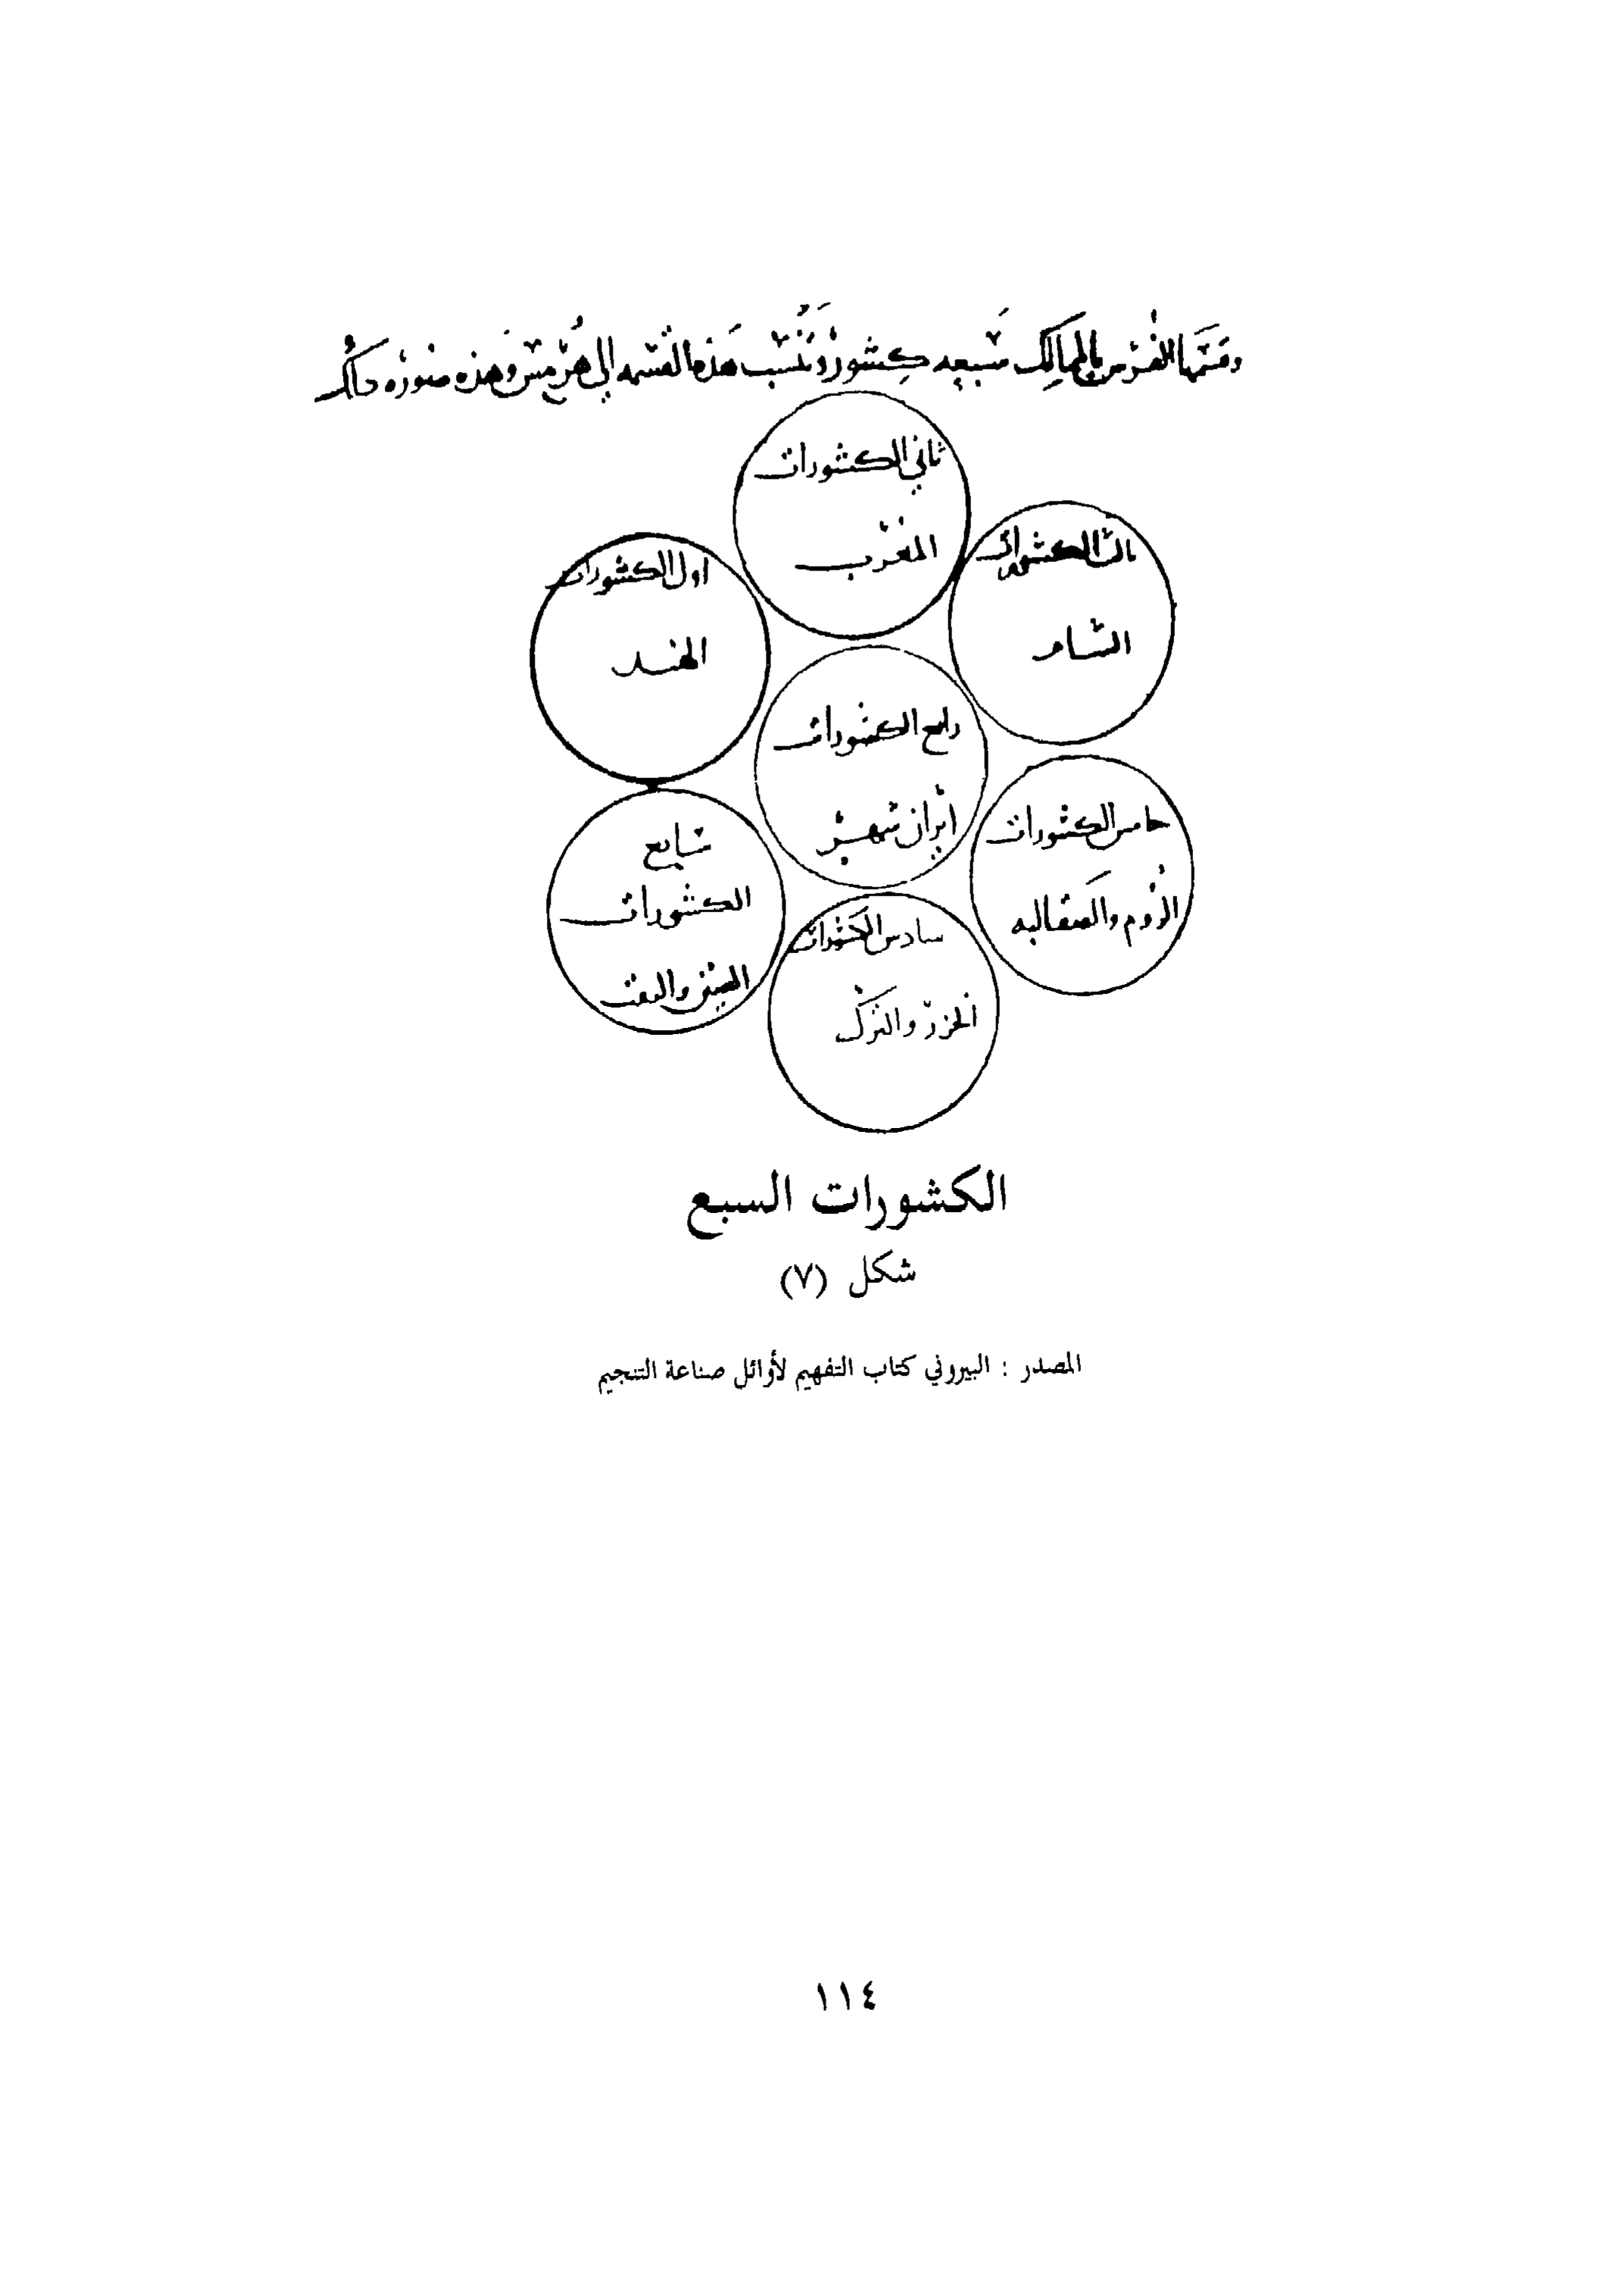 وقسمها الفرس بالممالك سبعه كشور وتنسب هذه القسمه الي هرمس وهذه صوره ذلك
ثاني الكشورات
المغرب
ثالث الكشورات
الشام
اول الكشورات
الهند
رابع الكشورات
ايران شهر
خامس الكشورات
الروم والصقالبه
سابع
الكشورات
الصين والتبت
سادس الكشورات
الخزر والترك
الكشورات السبع
شكل (٧)
المصدر : البيروني كتاب التفهيم لأوائل صناعة التنجيم
١١٤